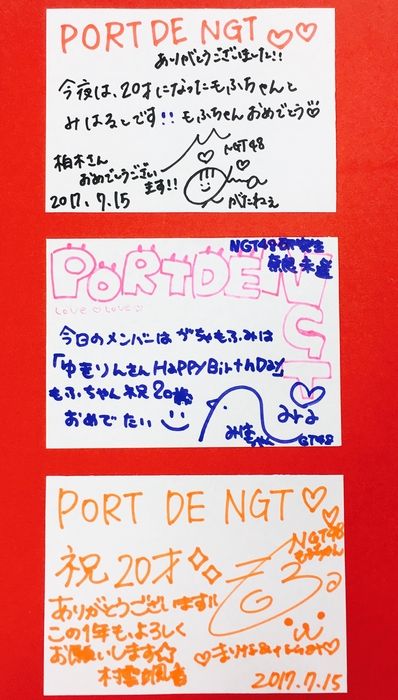 PORT DE NGT♡♡
ありがとうございました!!
今夜は、20才になったもふちゃんと
みはるとです!! もふちゃんおめでとう♡
柏木さん
おめでとうござい
ます!!
NGT48
がたねぇ
2017.7.15
PORTDENGT
LOVE♡LOVE♡
NGT48研究生
奈良未遥
今日のメンバーは がちゃもふみは
「ゆきりんさんHappyBirthDay」
もふちゃん祝20歳
おめでたい
みはちゃん
NGT48
PORT DE NGT♡♡
祝20才
NGT48
もふちゃん
ありがとうございます!!
この1年も、よろしく
お願いします☆
村雲颯香
2017.7.15